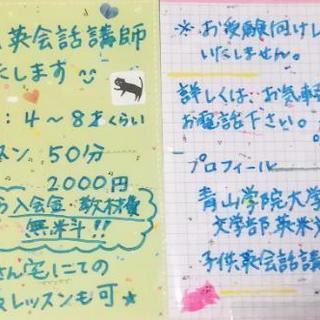 英会話講師
たします
: 4〜8才くらい
スン 50分
2000円
ら入会金・教材費
無料!!
さん宅にての
レッスンも可★
※お受験向けし
いたしません。
詳しくは、お気軽
お電話下さい。
プロフィール
青山学院大学
文学部英米文
子供英会話講